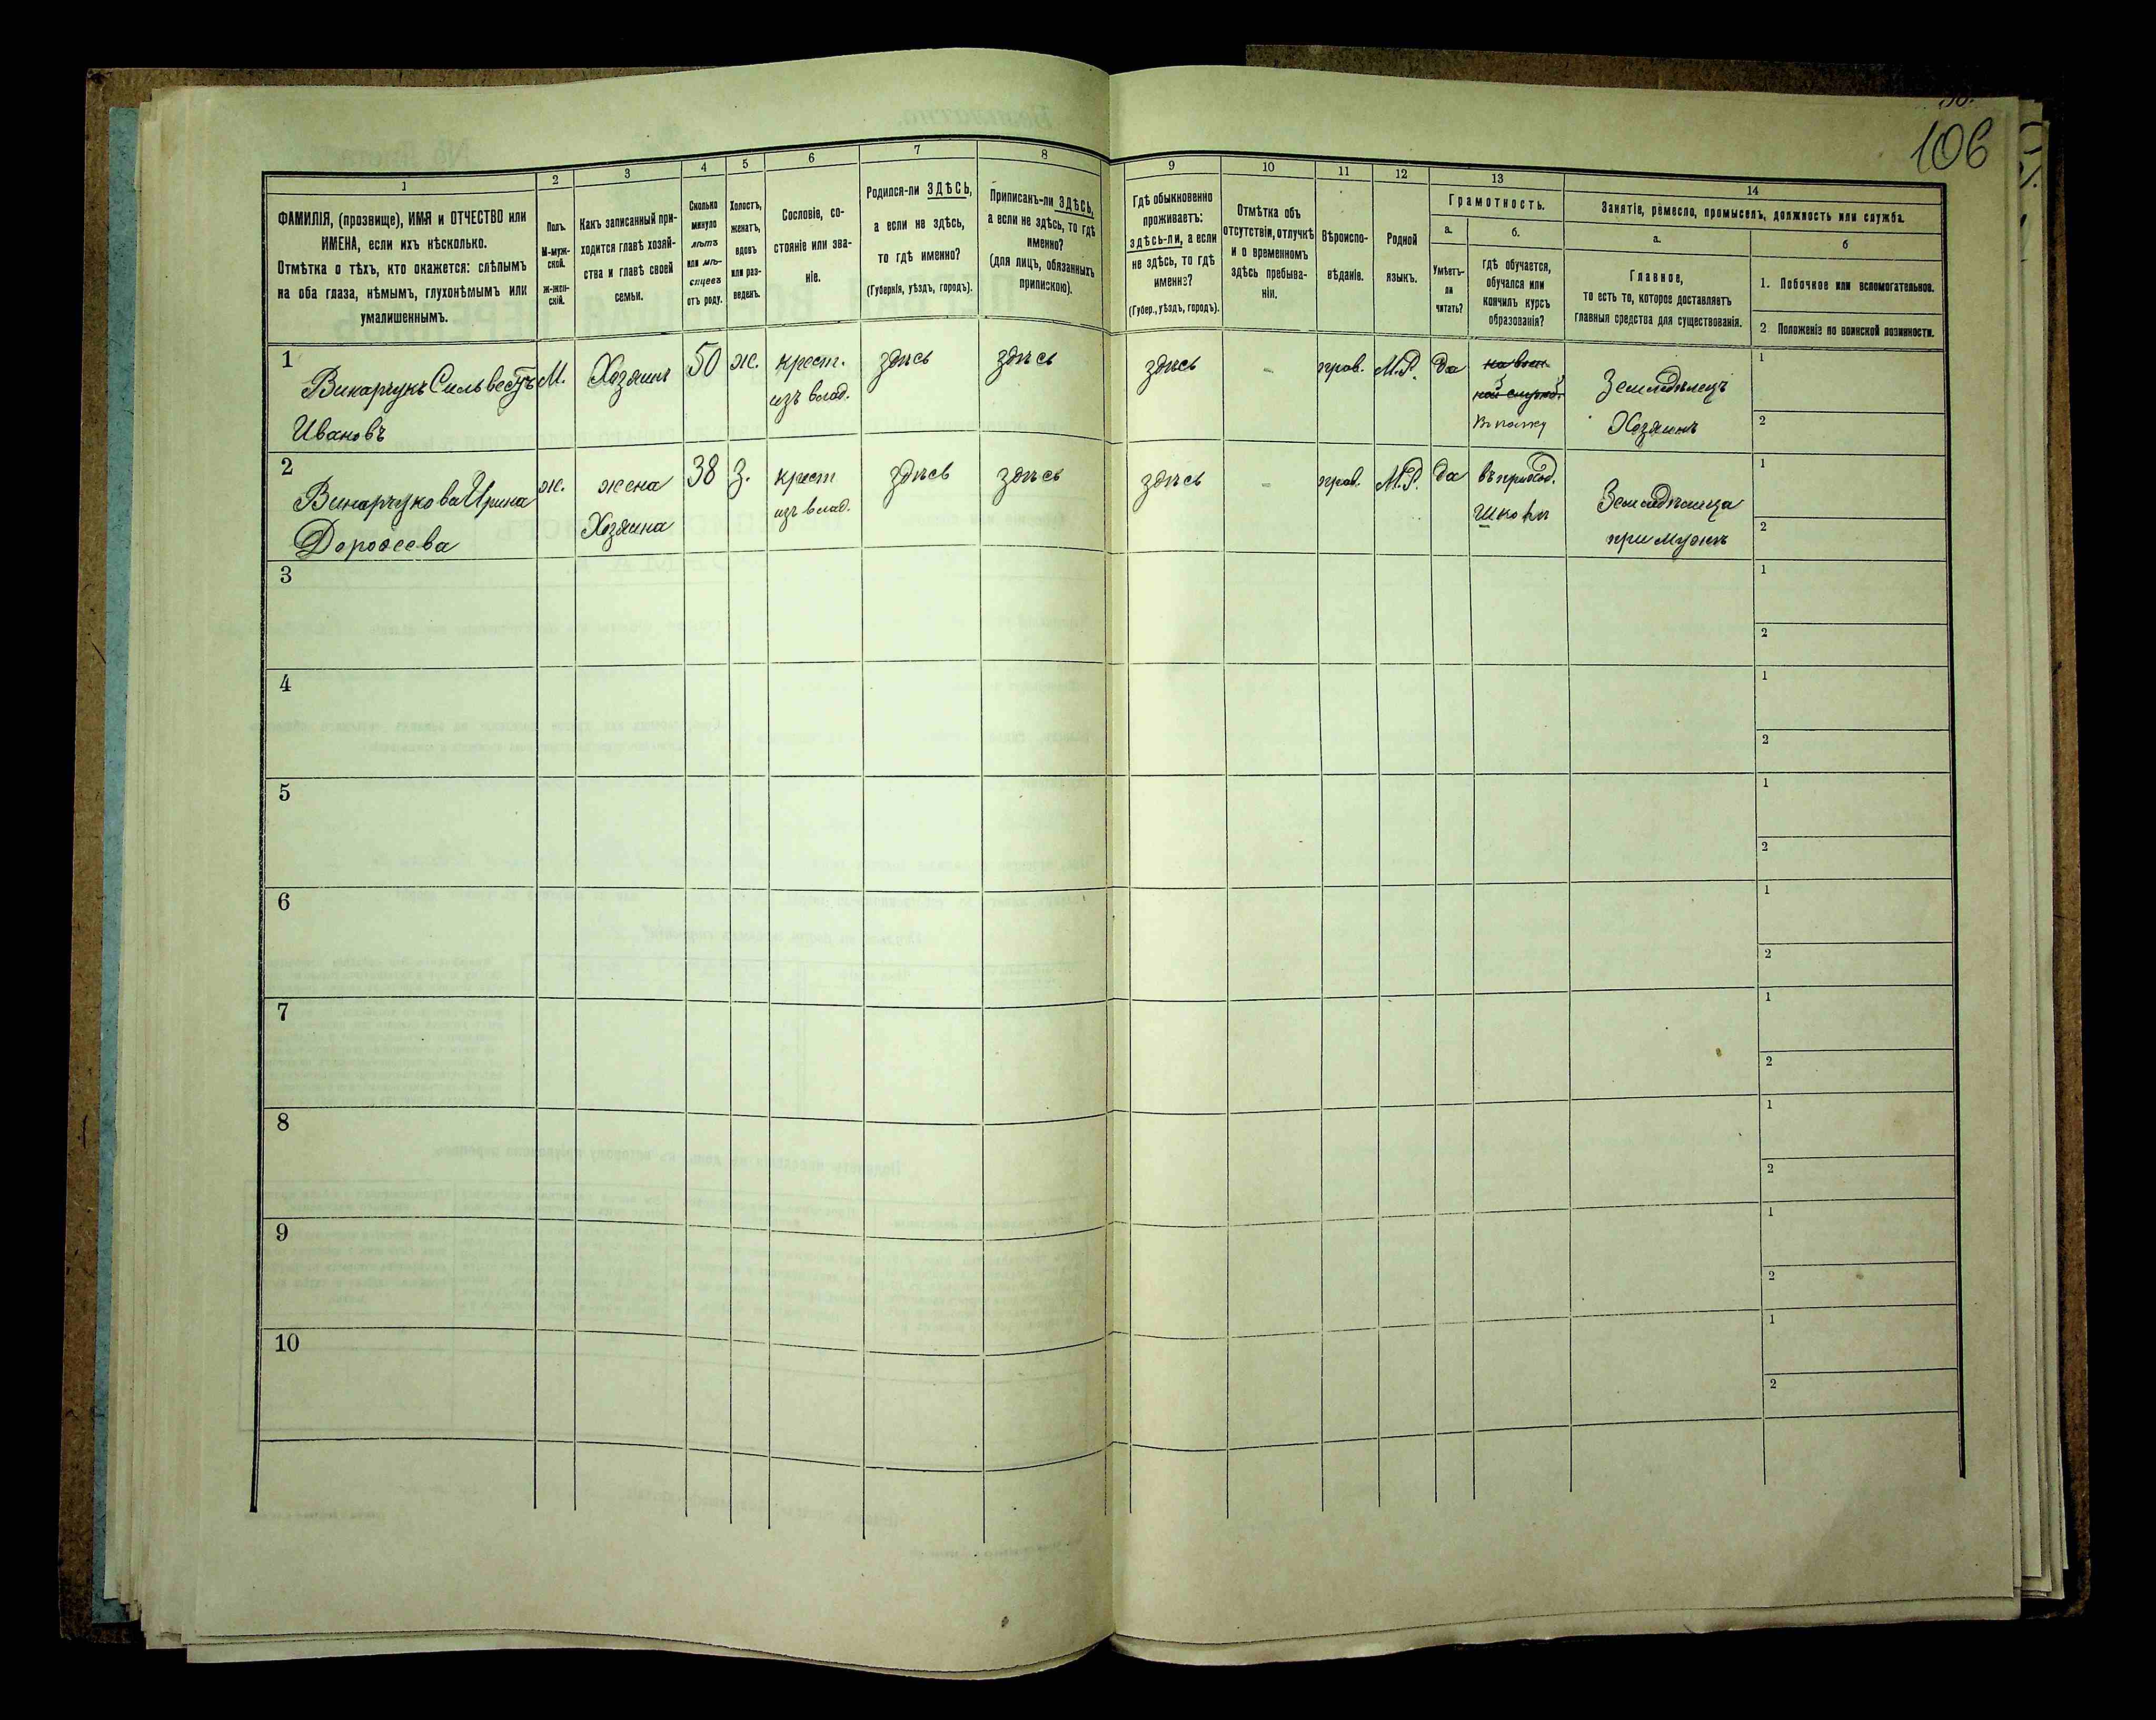 106
1
2
3
4
5
6
7
8
9
10
11
12
13
14
ФАМИЛІЯ, (прозвище), ИМЯ и ОТЧЕСТВО или
ИМЕНА, если ихъ нѣсколько.
Отмѣтка о тѣхъ, кто окажется: слѣпымъ
на оба глаза, нѣмымъ, глухонѣмымъ или
умалишеннымъ.
Полъ.
М-муж-
ской.
ж-жен-
скій.
Какъ записанный при-
ходится главѣ хозяй-
ства и главѣ своей
семьи.
Сколько
минуло
лѣтъ
или мѣ-
сяцевъ
отъ роду.
Холостъ,
женатъ,
вдовъ
или раз-
веденъ.
Сословіе, со-
стояніе или зва-
ніе.
Родился-ли ЗДѢСЬ,
а если не здѣсь,
то гдѣ именно?
(Губернія, уѣздъ, городъ).
Приписанъ-ли ЗДѢСЬ,
а если не здѣсь, то гдѣ
именно?
(для лицъ, обязанныхъ
припискою).
Гдѣ обыкновенно
проживаетъ:
здѣсь-ли, а если
не здѣсь, то гдѣ
именно?
(Губер., уѣздъ, городъ).
Отмѣтка объ
отсутствіи, отлучкѣ
и о временномъ
здѣсь пребыва-
ніи.
Вѣроиспо-
вѣданіе.
Родной
языкъ.
Грамотность.
а.
Умѣетъ-
ли
читать?
б.
гдѣ обучается,
обучался или
кончилъ курсъ
образованія?
Занятіе, ремесло, промыселъ, должность или служба.
а.
Главное,
то есть то, которое доставляетъ
главныя средства для существованія.
б
1. Побочное или вспомогательное.
2 Положеніе по воинской повинности.
1
Винарчукъ Сильвестръ
Ивановъ
М.
Хозяинъ
50
ж.
крест.
изъ влад.
здѣсь
здѣсь
здѣсь
-
прав.
М.Р.
да
на воен-
ной служб.
Въ полку
Земледѣлецъ
Хозяинъ
1
2
2
Винарчукова Ирина
Дорофеева
ж.
жена
Хозяина
38
З.
крест
изъ влад.
здѣсь
здѣсь
здѣсь
-
прав.
М.Р.
да
въ приход.
Школѣ
Земледѣлица
при мужѣ
1
2
3
1
2
4
1
2
5
1
2
6
1
2
7
1
2
8
1
2
9
1
2
10
1
2